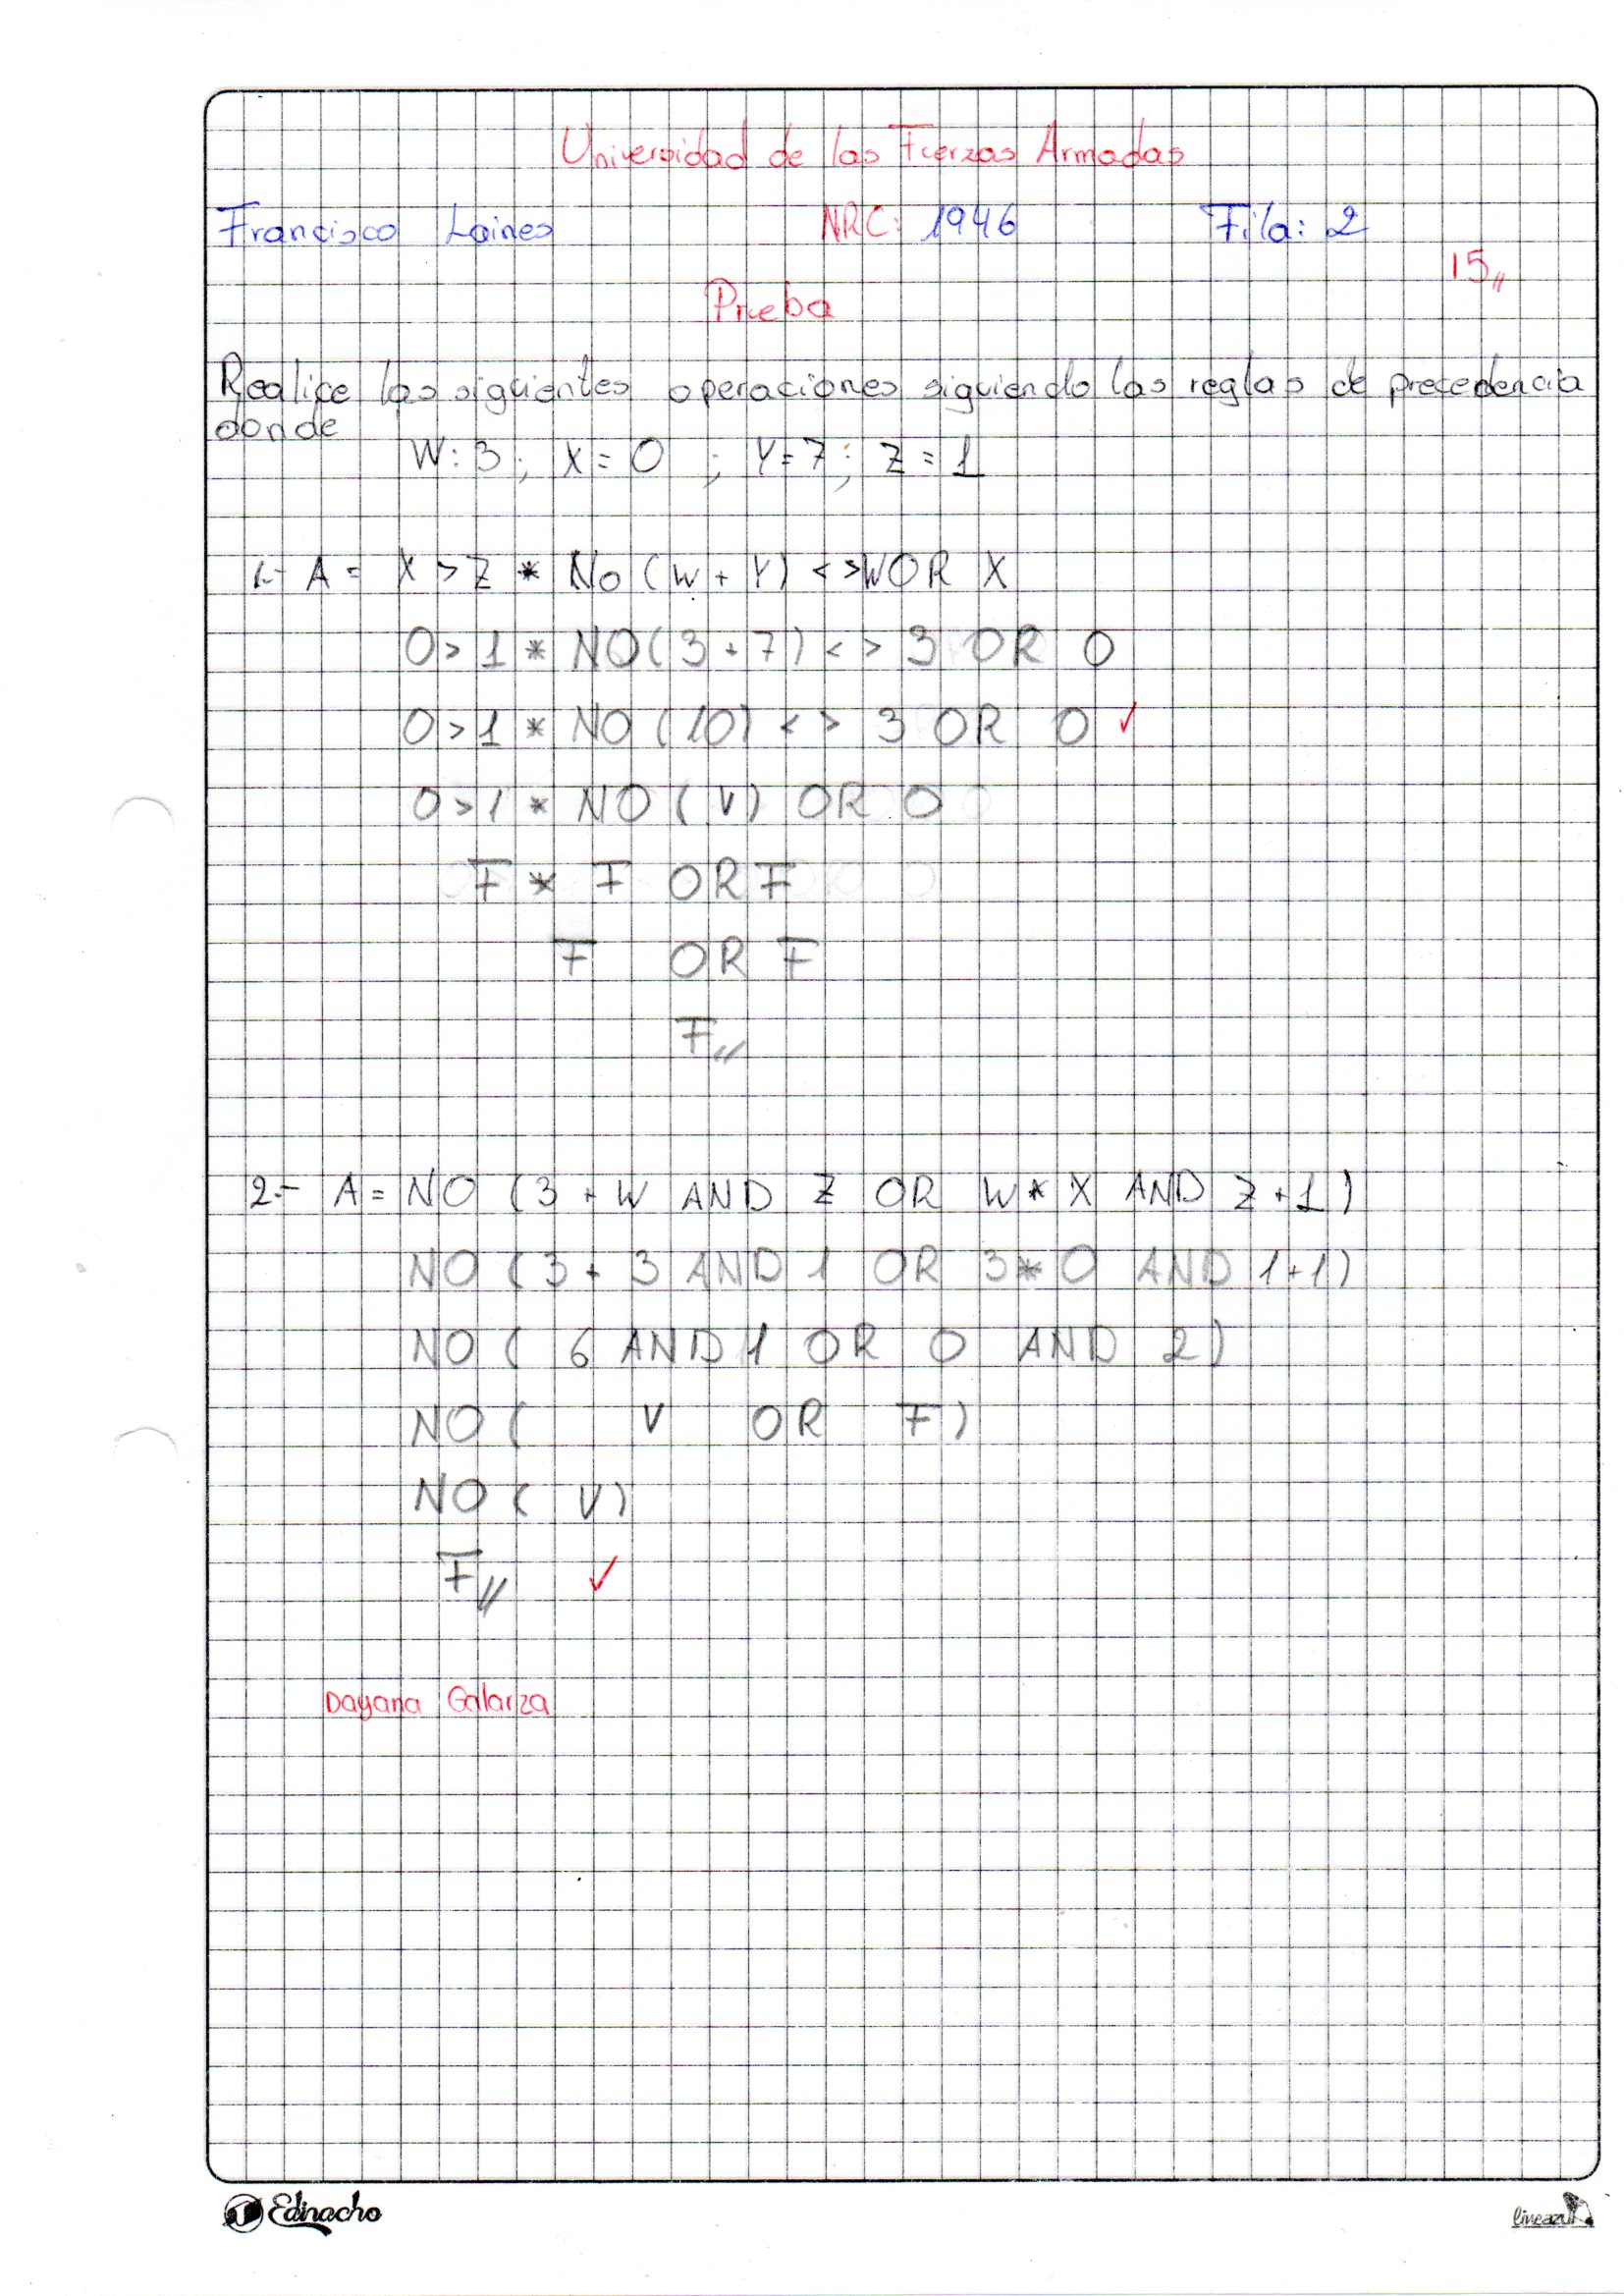 Universidad de las Fuerzas Armadas
Francisco Laines NRC: 1946 Fila: 2
15
Prueba
Realice las siguientes operaciones siguiendo las reglas de precedencia
donde
W: 3 ; X = 0 ; Y = 7 ; Z = 1
1.- A = X > Z * No (W + Y) < > W OR X
0 > 1 * NO (3 + 7) < > 3 OR 0
0 > 1 * NO (10) < > 3 OR 0 ✓
0 > 1 * NO (V) OR 0
F * F OR F
F OR F
F //
2.- A = NO (3 + W AND Z OR W * X AND Z + 1)
NO (3 + 3 AND 1 OR 3 * 0 AND 1 + 1)
NO ( 6 AND 1 OR 0 AND 2)
NO ( V OR F)
NO ( V)
F // ✓
Dayana Galarza
Edinacho
lineazul